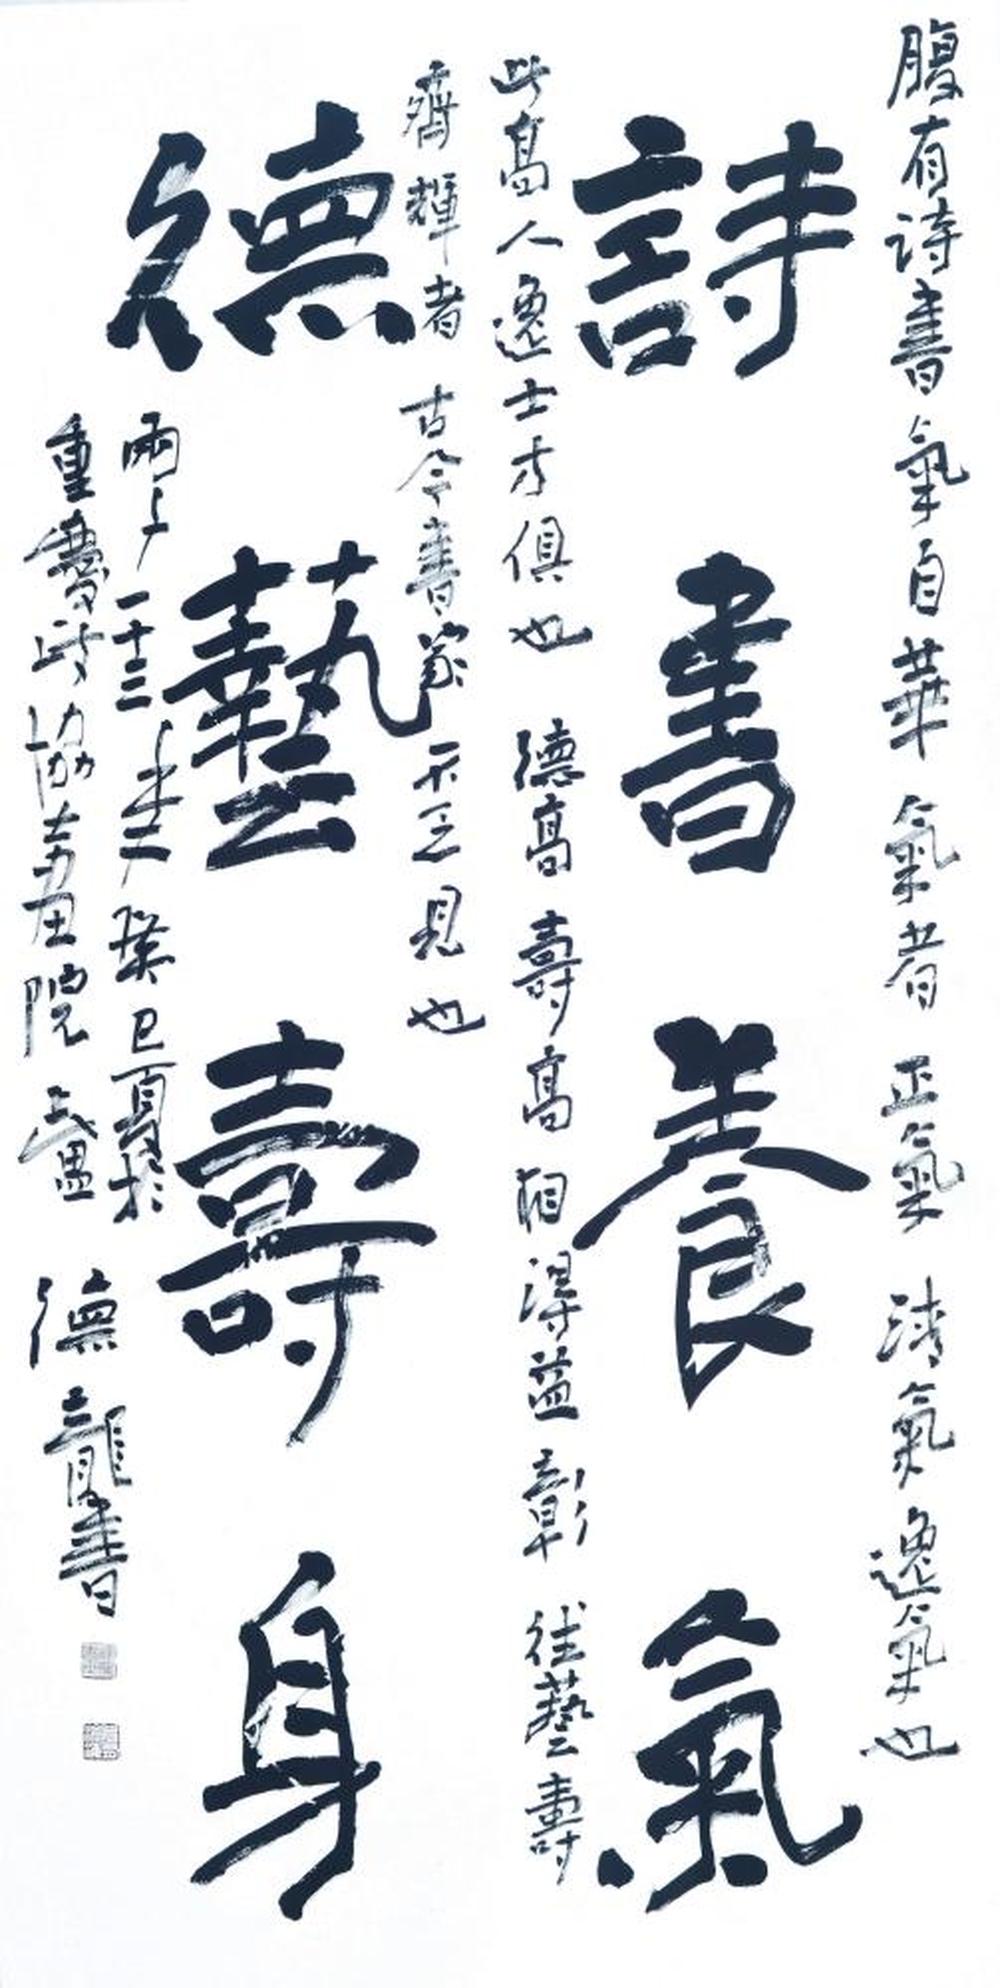 腹有诗書氣自華 氣者 正氣 清氣 逸氣也
詩書養氣
此高人逸士才俱也 德高壽高相得益彰 往藝壽
齊輝者 古今書家不乏見也
德藝壽身
癸巳夏於
重慶 協畫院 德龍書